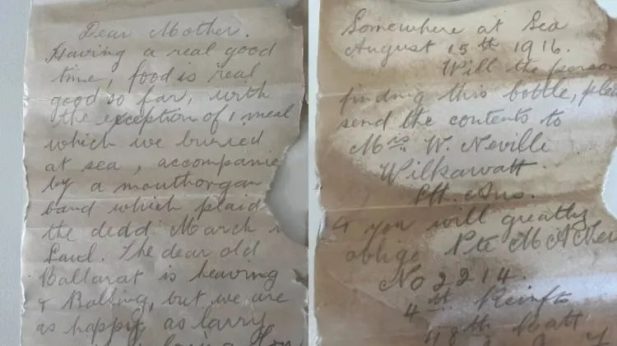 Dear Mother.
Having a real good
time, food is real
good so far, with
the exception of 1 meal
which we burried
at sea, accompanie
by a mouthorgan
band which plaid
the dead March
Saul. The dear old
Ballarat is heaving
& Rolling, but we are
as happy as larry
Somewhere at Sea
August 15th 1916.
Will the person
finding this bottle, ple
send the contents to
Mrs W. Neville
Wilkawatt
Sth. Aus.
& you will greatly
oblige Pte M A Nev
No 2214.
4th Reinfts
48th Batt